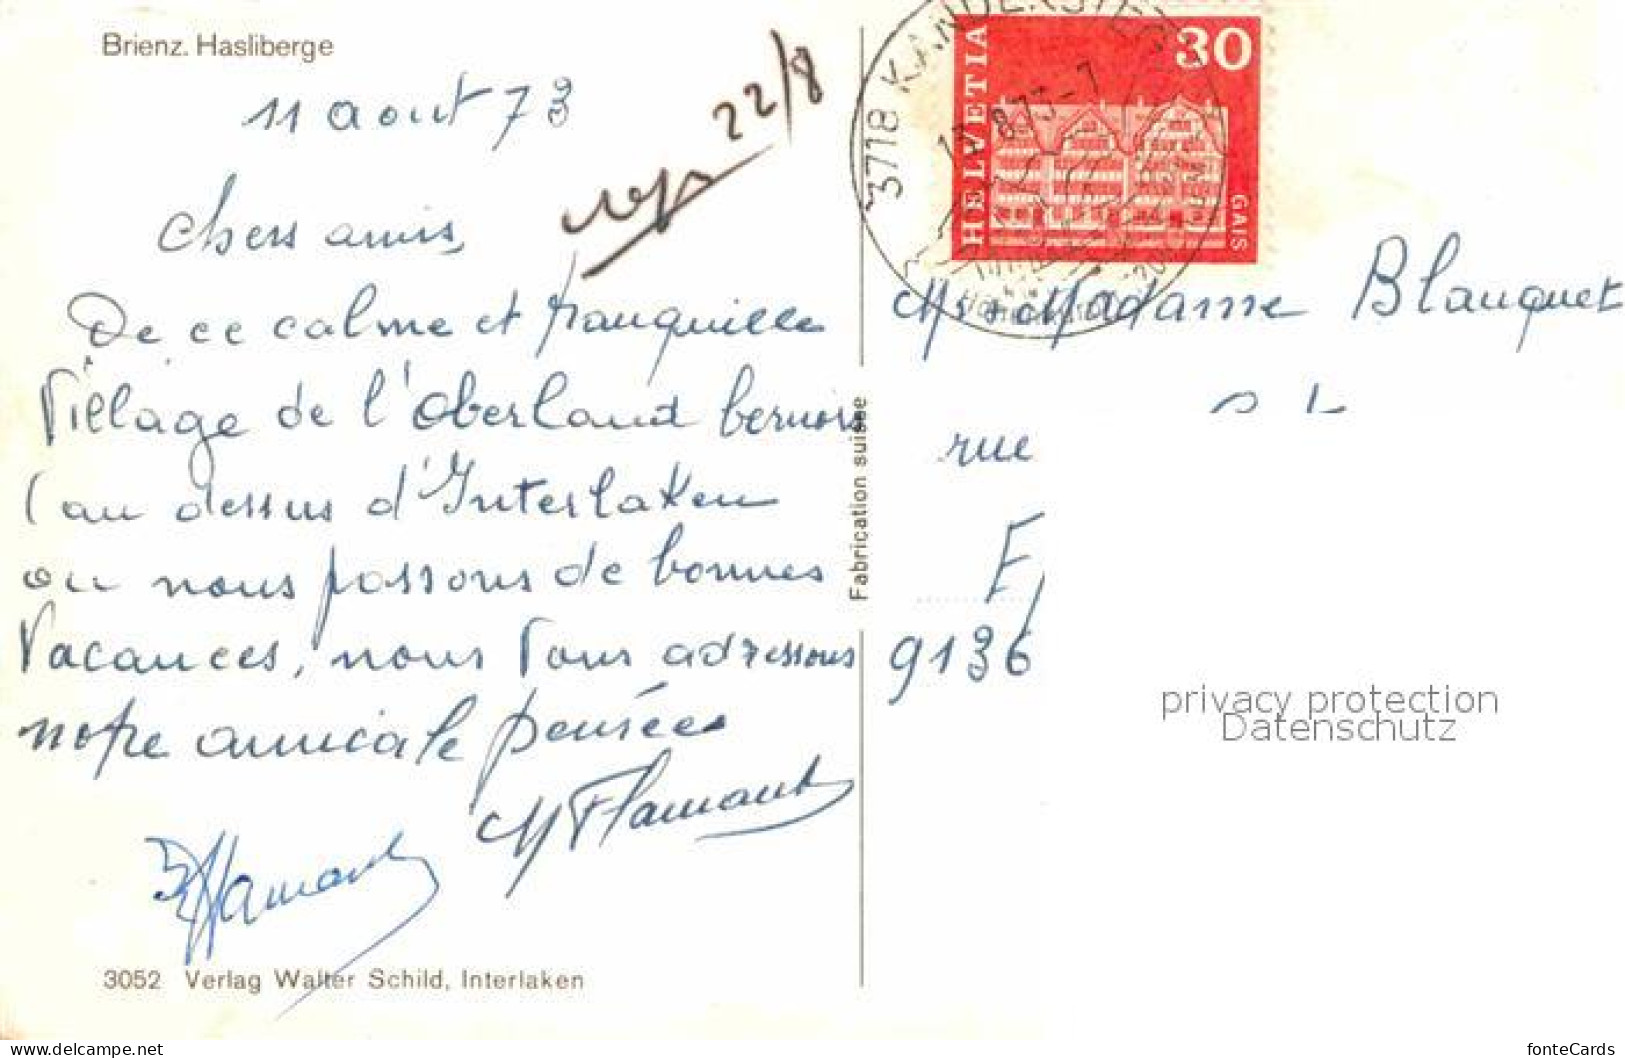 Brienz. Hasliberge
11 aout 73
22/8
Chers amis
De ce calme et tranquille
Village de l'Oberland bernois
(au dessus d'Interlaken
ou nous passons de bonnes
Vacances, nous Vous adressons
notre amicale pensée
M Flamant
Flamant
3052 Verlag Walter Schild, Interlaken
Fabrication suisse
3718 KANDERSTEG
8.73-7
HELVETIA
30
GAIS
Mr & Madame Blanquet
rue
9136
privacy protection
Datenschutz
www.delcampe.net
fonteCards